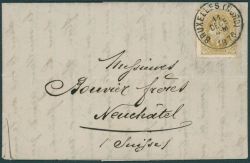 BRUXELLES (NORD)
1876
Messieurs
Bouvier frères
Neuchâtel
(Suisse)